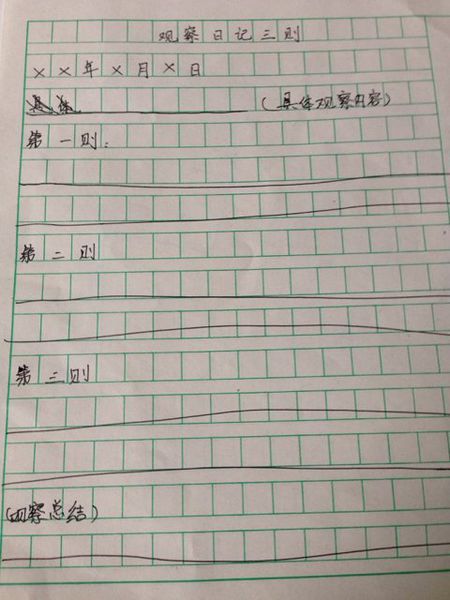 观察日记三则
××年×月×日
(具体观察内容)
第一则:
第二则
第三则
(观察总结)